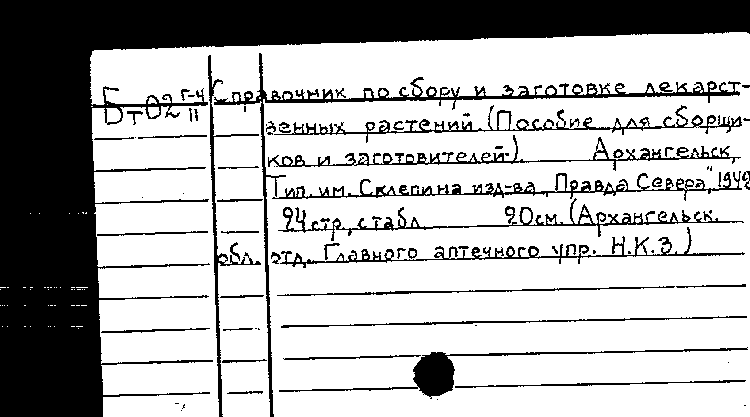 Бт02 г-4/II Справочник по сбору и заготовке лекарст-
венных растений. (Пособие для сборщи-
ков и заготовителей). Архангельск,
Тип. им. Склепина изд-ва „Правда Севера",
24 стр., с табл. 20 см. (Архангельск.
обл. отд. Главного аптечного упр. Н.К.З.)